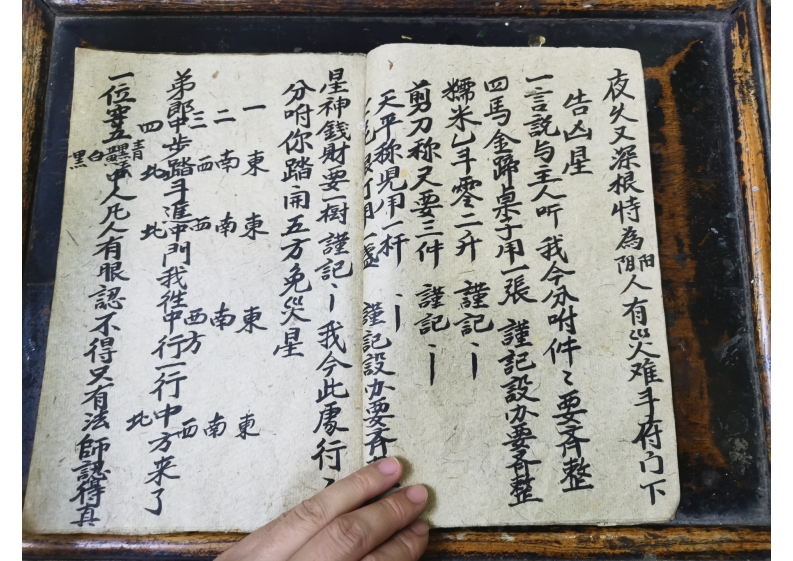 夜乆又深根特為陽陰人有災难斗府门下
告凶星
一言說与主人听 我今分咐件〻要斉整
四馬金蹄桌子用一張 謹記設办要斉整
糯米乚斗零二升 謹記〻
剪刀称尺要三件 謹記〻
天平称児用一杆 〻
用一盏 謹記設办要斉
星神錢財要一樹 謹記〻 我今此處行
分咐你踏開五方免災星
一 東 東 東 東
二 南 南 南 南
三 西 西 西方 西
四 北 北 北
弟郎中步踏斗進中門我徃中行一行中方来了
一位穿五青 白黑中人凡人有眼認不得又有法師認得真